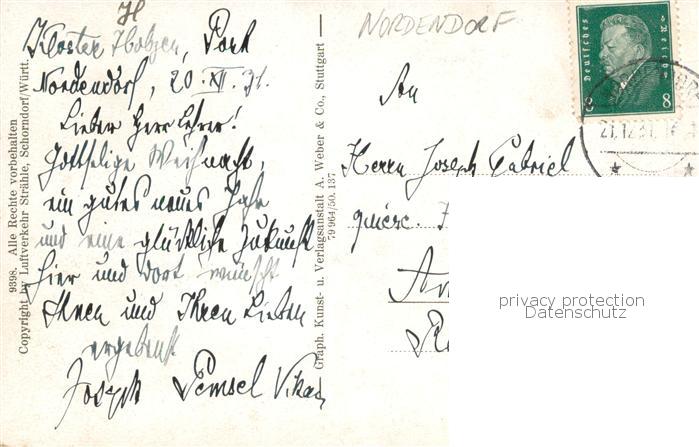 H
Kloster Holzen, Post
Nordendorf, 20. XII. 31.
Lieber Herr Lehrer!
Gottselige Weihnacht,
ein gutes neues Jahr
und eine glückliche Zukunft
hier und dort wünscht
Ihnen und Ihren Lieben
ergebenst
Joseph Pemsel Vikar
9398. Alle Rechte vorbehalten
Copyright by Luftverkehr Strähle, Schorndorf/Württ.
Graph. Kunst- u. Verlagsanstalt A. Weber & Co., Stuttgart
79 964/50. 137
NORDENDORF
Deutsches Reich
8 8
21.12.31.
An
Herrn Joseph Gabriel
quiesc.
privacy protection
Datenschutz